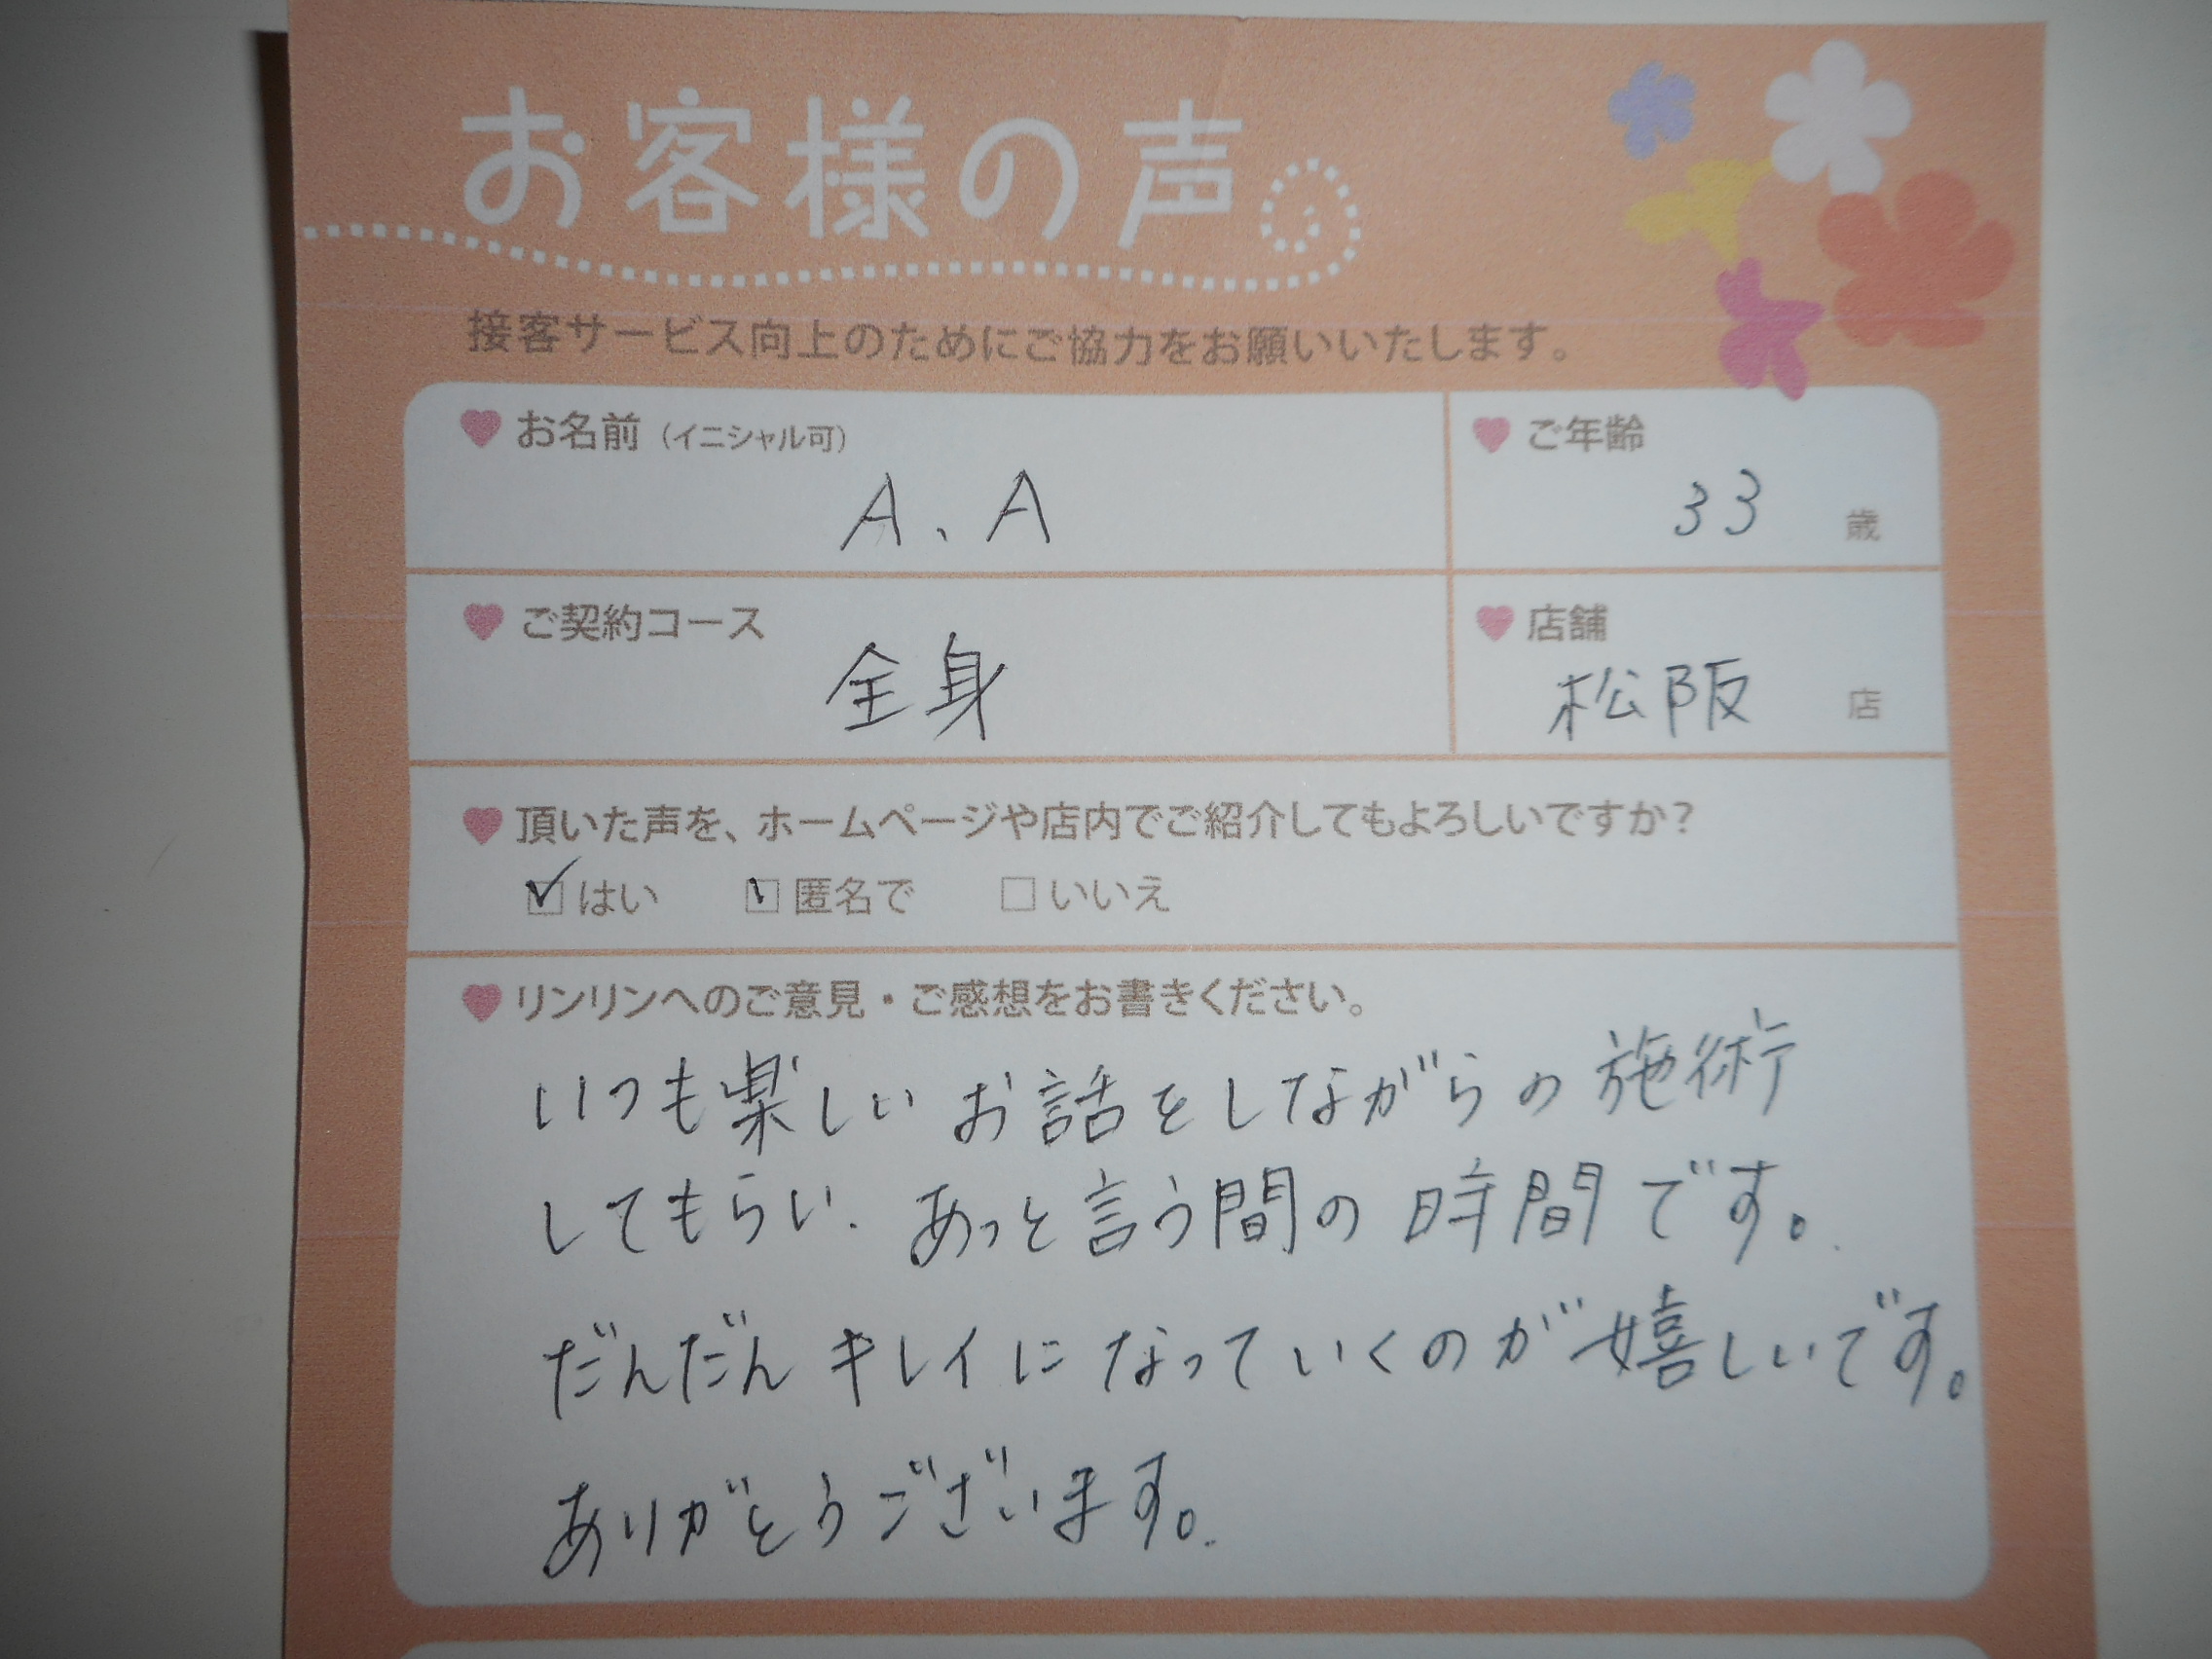 お客様の声。
接客サービス向上のためにご協力をお願いいたします。
お名前（イニシャル可）
A、A
ご年齢
33 歳
ご契約コース
全身
店舗
松阪 店
頂いた声を、ホームページや店内でご紹介してもよろしいですか？
はい 匿名で いいえ
リンリンへのご意見・ご感想をお書きください。
いつも楽しいお話をしながらの施術
してもらい、あっと言う間の時間です。
だんだんキレイになっていくのが嬉しいです。
ありがとうございます。